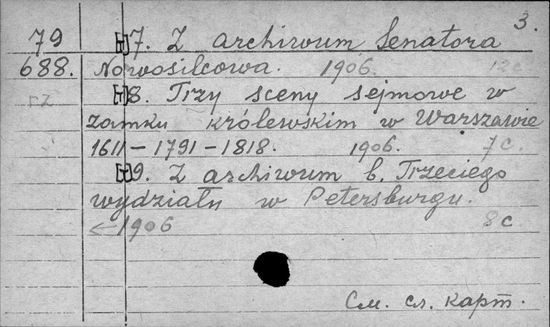 3.
79 [т]7. Z archiwum Senatora
688. Nowosilcowa. 1906. 12c
[т]8. Trzy sceny sejmowe w
zamku królewskim w Warszawie
1611–1791–1818. 1906. 7c.
[т]9. Z archiwum b. Trzeciego
wydziału w Petersburgu.
←1906 8c
См. сл. карт.